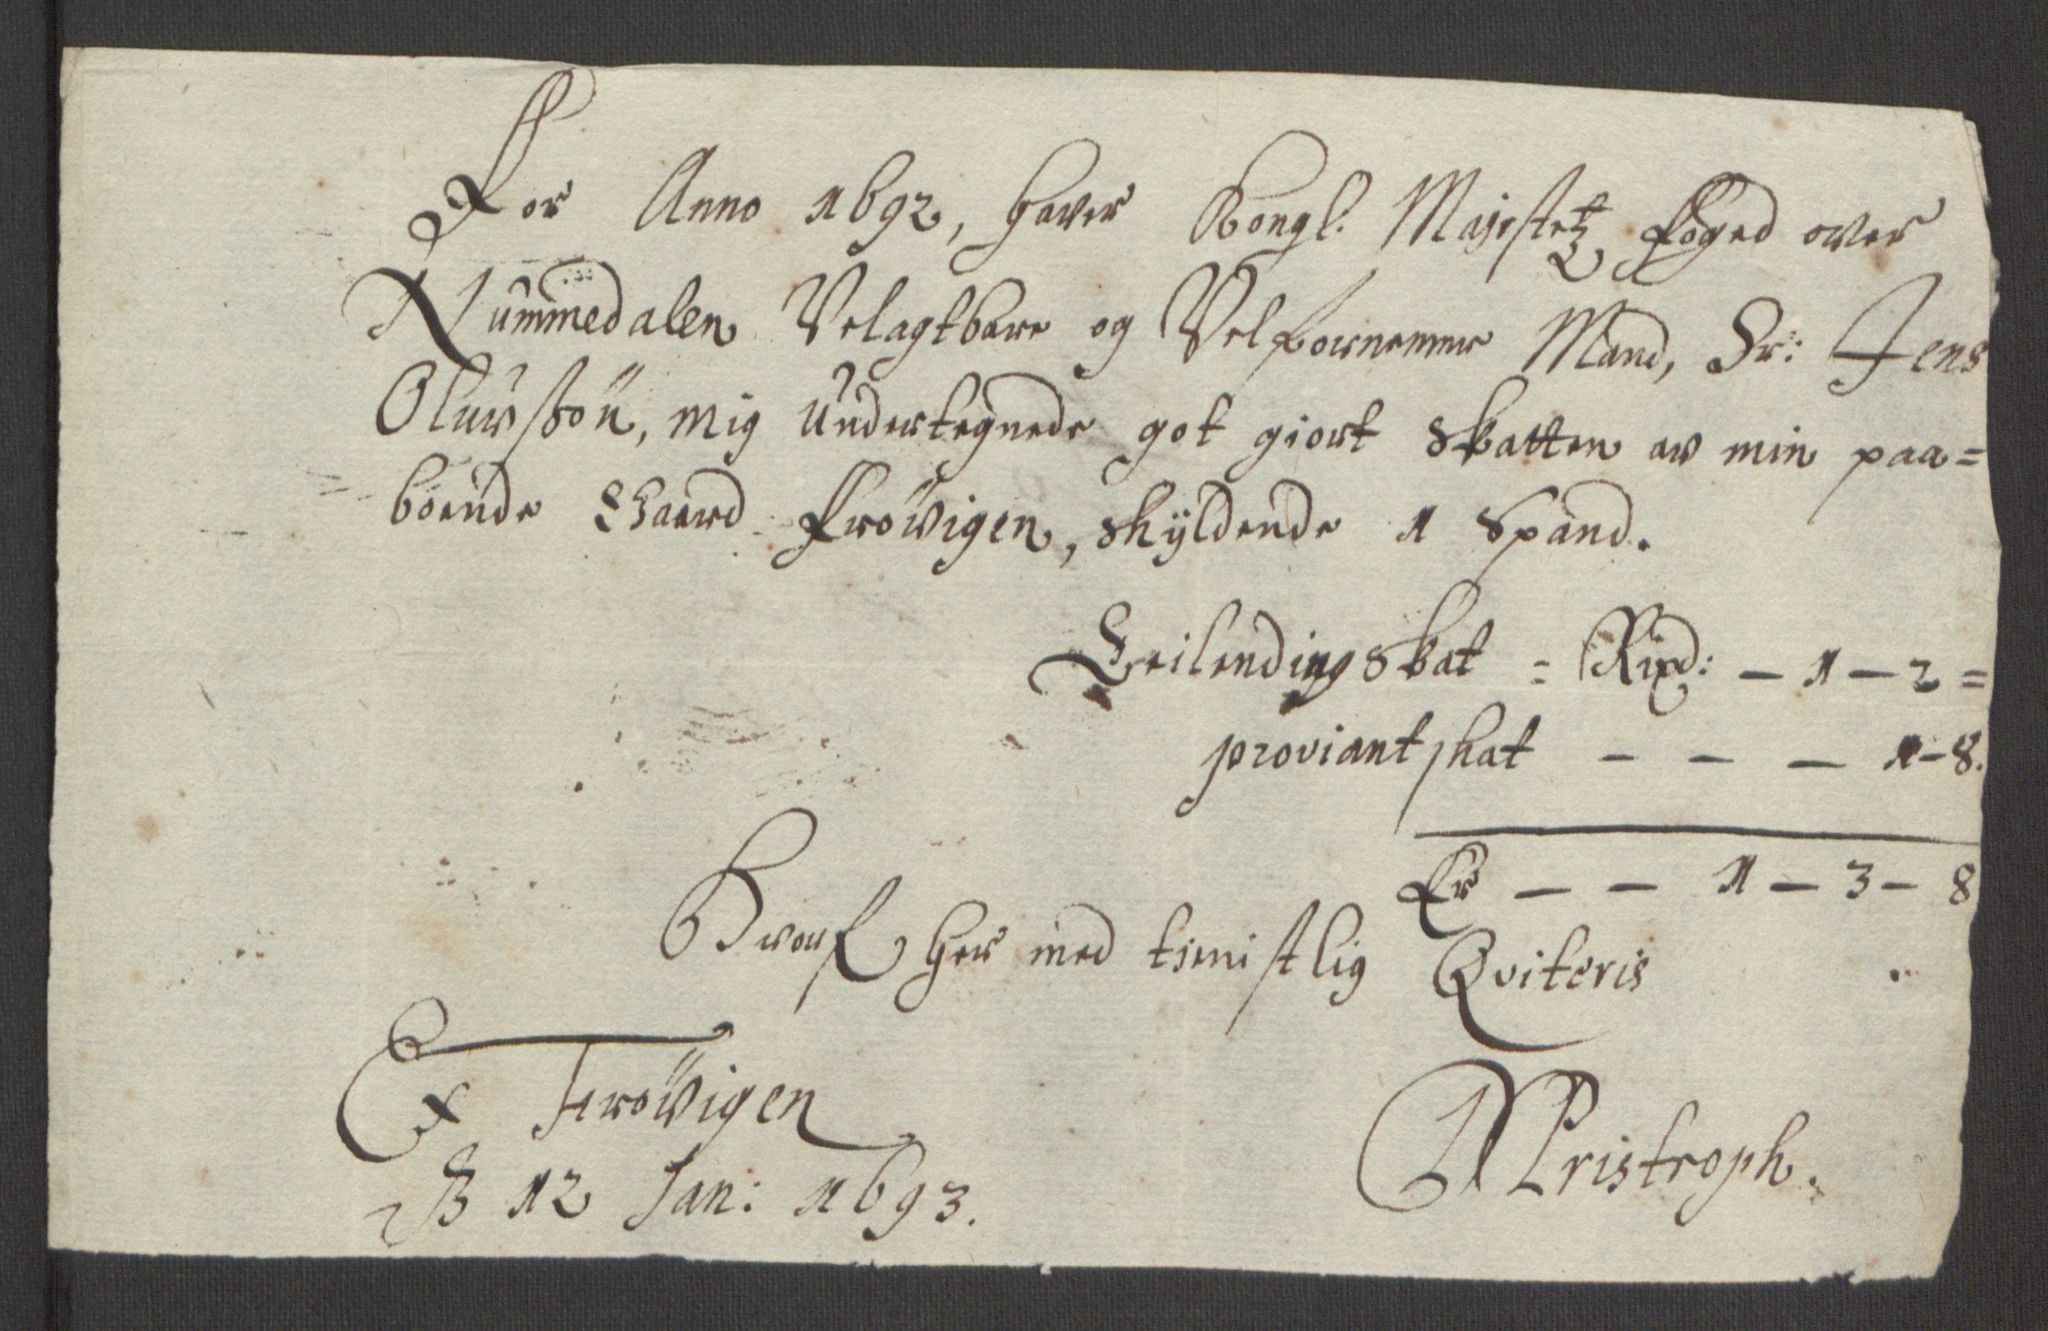 For Anno 1692, haver Kongl. Majestetz Foged over
Nummedalen Velagtbare og Velfornemme Mand, Sr: Jens
Oluvssön, mig Undertegnede got giort Skatten av min paa=
böende Gaard Frövigen, skyldende 1 Spand.
Leilendingskat = Rixd: — 1 — 2 =
proviantskat — — — 1 — 8.
Er — — 1 — 3 — 8
Hvorf her med tienistlig Qviteris
Ex Frövigen
D 12 Jan: 1693.
Pristroph.